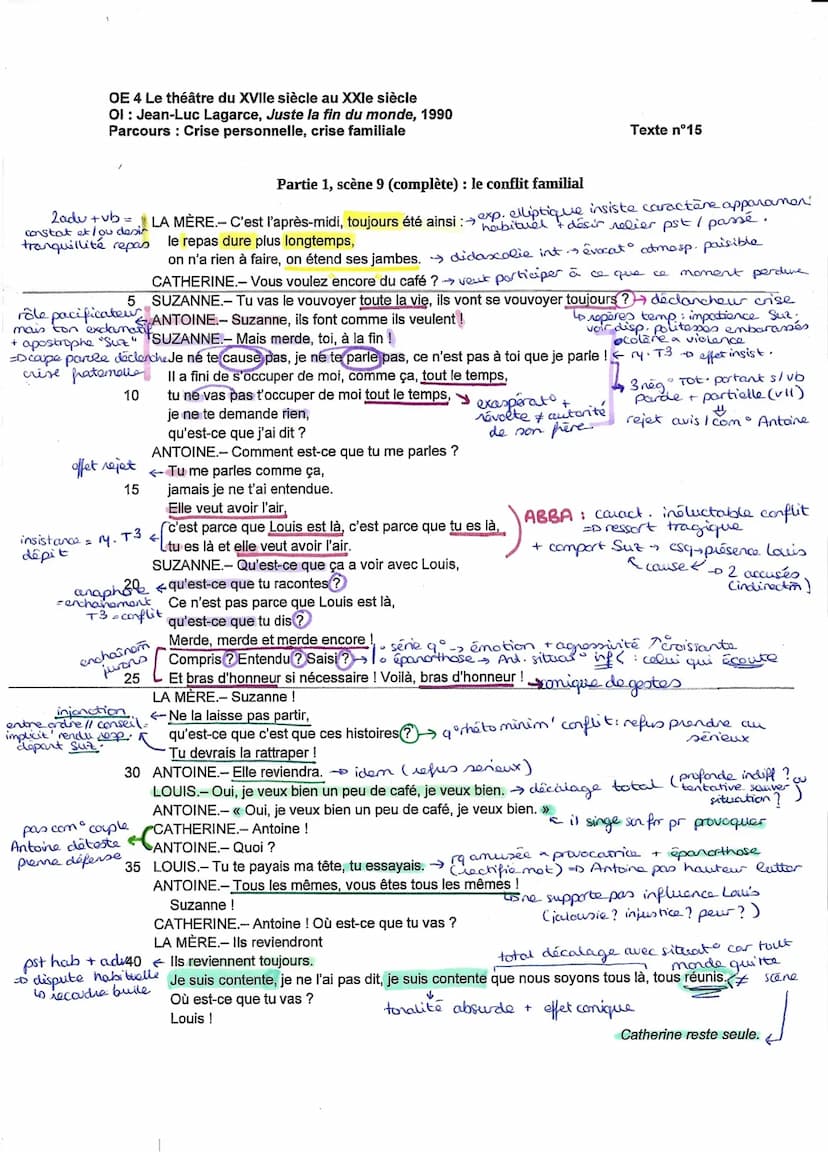 OE 4 Le théâtre du XVIIe siècle au XXIe siècle
OI : Jean-Luc Lagarce, Juste la fin du monde, 1990
Parcours : Crise personnelle, crise familiale
Texte n°15
Partie 1, scène 9 (complète) : le conflit familial
2adv + vb =
constat et/ou desir
tranquillité repas
LA MÈRE.– C'est l'après-midi, toujours été ainsi :
→ exp. elliptique insiste caractère apparamen'
habituel + désir relier pst / passé.
le repas dure plus longtemps,
on n'a rien à faire, on étend ses jambes.
→ didascalie int → évocat° atmosp. paisible
CATHERINE.– Vous voulez encore du café ?
→ veut participer à ce que ce moment perdure
5
SUZANNE.– Tu vas le vouvoyer toute la vie, ils vont se vouvoyer toujours ?
→ déclencheur crise
↳ repères temp : impatience Suz.
voir disp. politesses embarassés
rôle pacificateur
mais ton exclamatif
+ apostrophe "Suz"
=> coupe parole déclenche
crise fraternelle
ANTOINE.– Suzanne, ils font comme ils veulent !
SUZANNE.– Mais merde, toi, à la fin !
colère + violence
Je ne te cause pas, je ne te parle pas, ce n'est pas à toi que je parle !
← ry. T3 → effet insist.
Il a fini de s'occuper de moi, comme ça, tout le temps,
10
tu ne vas pas t'occuper de moi tout le temps,
je ne te demande rien,
qu'est-ce que j'ai dit ?
exaspérat° +
révolte ≠ autorité
de son frère
3 nég° Tot. portant s/ vb
parole + partielle (v11)
rejet avis / com° Antoine
ANTOINE.– Comment est-ce que tu me parles ?
effet rejet
← Tu me parles comme ça,
15
jamais je ne t'ai entendue.
Elle veut avoir l'air,
c'est parce que Louis est là, c'est parce que tu es là,
tu es là et elle veut avoir l'air.
insistance = ry. T3
dépit
ABBA : caract. inéluctable conflit
=> ressort tragique
+ comport Suz → csq → présence Louis
cause
→ 2 accusés
(indirectm)
SUZANNE.– Qu'est-ce que ça a voir avec Louis,
20
qu'est-ce que tu racontes ?
Ce n'est pas parce que Louis est là,
qu'est-ce que tu dis ?
anaphore
= enchainement
T3 = conflit
Merde, merde et merde encore !
Compris ? Entendu ? Saisi ?
25
Et bras d'honneur si nécessaire ! Voilà, bras d'honneur !
enchaînem
jurons
série q° → émotion + agressivité ↗ croissante
épanorthose → Ant. situat° inf < : celui qui écoute
→ comique de gestes
LA MÈRE.– Suzanne !
← Ne la laisse pas partir,
qu'est-ce que c'est que ces histoires ?
Tu devrais la rattraper !
injonction
entre ordre // conseil =
implicit' rendu resp.
départ Suz.
→ q°rhéto minim' conflit : refus prendre au
sérieux
30
ANTOINE.– Elle reviendra.
→ idem (refus serieux)
LOUIS.– Oui, je veux bien un peu de café, je veux bien.
→ décalage total (profonde indiff ? ou
tentative sauver
situation ? )
ANTOINE.– « Oui, je veux bien un peu de café, je veux bien. »
← il singe son frr pr provoquer
CATHERINE.– Antoine !
ANTOINE.– Quoi ?
pas com° couple
Antoine déteste
prenne défense
35
LOUIS.– Tu te payais ma tête, tu essayais.
→ rq amusée ~ provocatrice + épanorthose
(rectifie mot) => Antoine pas hauteur lutter
ANTOINE.– Tous les mêmes, vous êtes tous les mêmes !
Suzanne !
↳ ne supporte pas influence Louis
(jalousie ? injustice ? peur ? )
CATHERINE.– Antoine ! Où est-ce que tu vas ?
LA MÈRE.– Ils reviendront
40
← Ils reviennent toujours.
Je suis contente, je ne l'ai pas dit, je suis contente que nous soyons tous là, tous réunis.
Où est-ce que tu vas ?
Louis !
pst hab + adv
=> dispute habituelle
total décalage avec situat° car tout
monde quitte
≠ scène
tonalité absurde + effet comique
Catherine reste seule.